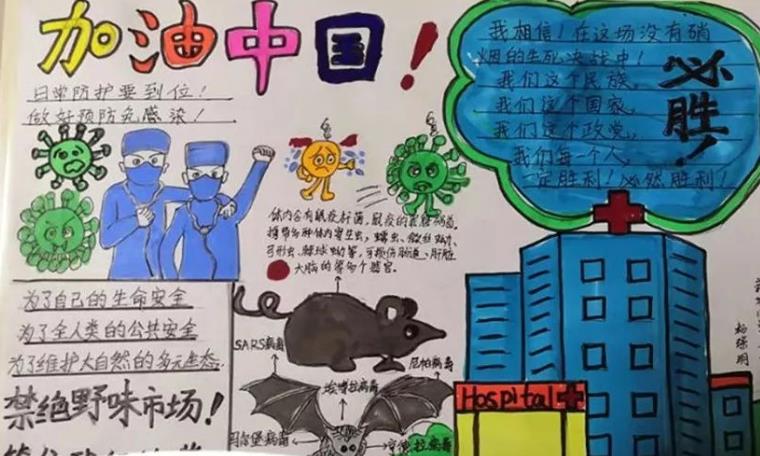 加油中国！
日常防护要到位！
做好预防免感染！
我相信！在这场没有硝
烟的生死决战中！
我们这个民族，
我们这个国家，
我们这个政党，
我们每一个人，
一定胜利！必然胜利！
必胜！
体内含有鼠疫杆菌，鼠疫的
等多种体内寄生虫，蠕虫、
弓形虫、等，可损伤肠道、肝脏
大脑的等多个器官。
为了自己的生命安全
为了全人类的公共安全
为了维护大自然的多元生态
禁绝野味市场！
SARS病毒
尼帕病毒
埃博拉病毒
马尔堡病毒
亨德拉病毒
Hospital